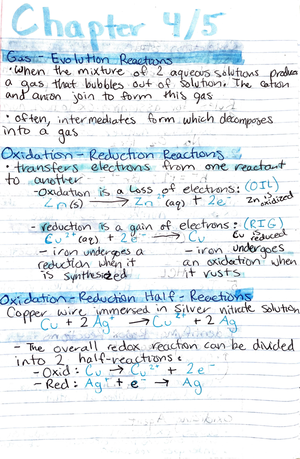 Chapter 4/5
Gas - Evolution Reactions
• When the mixture of 2 aqueous solutions produce
a gas that bubbles out of solution. The cation
and anion join to form this gas
• often, intermediates form which decomposes
into a gas
Oxidation - Reduction Reactions
• transfers electrons from one reactant
to another
- Oxidation is a Loss of electrons: (OIL)
Zn(s) → Zn²⁺(aq) + 2e⁻ Zn is oxidized
- reduction is a gain of electrons: (RIG)
Cu²⁺(aq) + 2e⁻ → Cu Cu is reduced
- iron undergoes a reduction when it is synthesized
- iron undergoes an oxidation when it rusts
Oxidation - Reduction Half - Reactions
Copper wire immersed in Silver nitrate solution
Cu + 2 Ag⁺ → Cu²⁺ + 2 Ag
- The overall redox reaction can be divided
into 2 half-reactions:
- Oxid: Cu → Cu²⁺ + 2e⁻
- Red: Ag⁺ + e⁻ → Ag